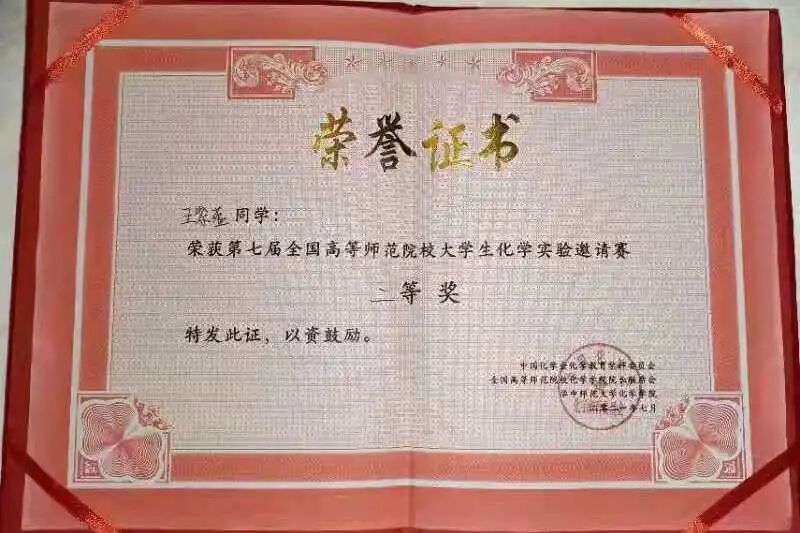 荣誉证书
王 同学：
荣获第七届全国高等师范院校大学生化学实验邀请赛
二等奖
特发此证，以资鼓励。
中国化学会化学教育学科委员会
全国高等师范院校化学学院院长联席会
华中师范大学化学学院
二〇二一年七月